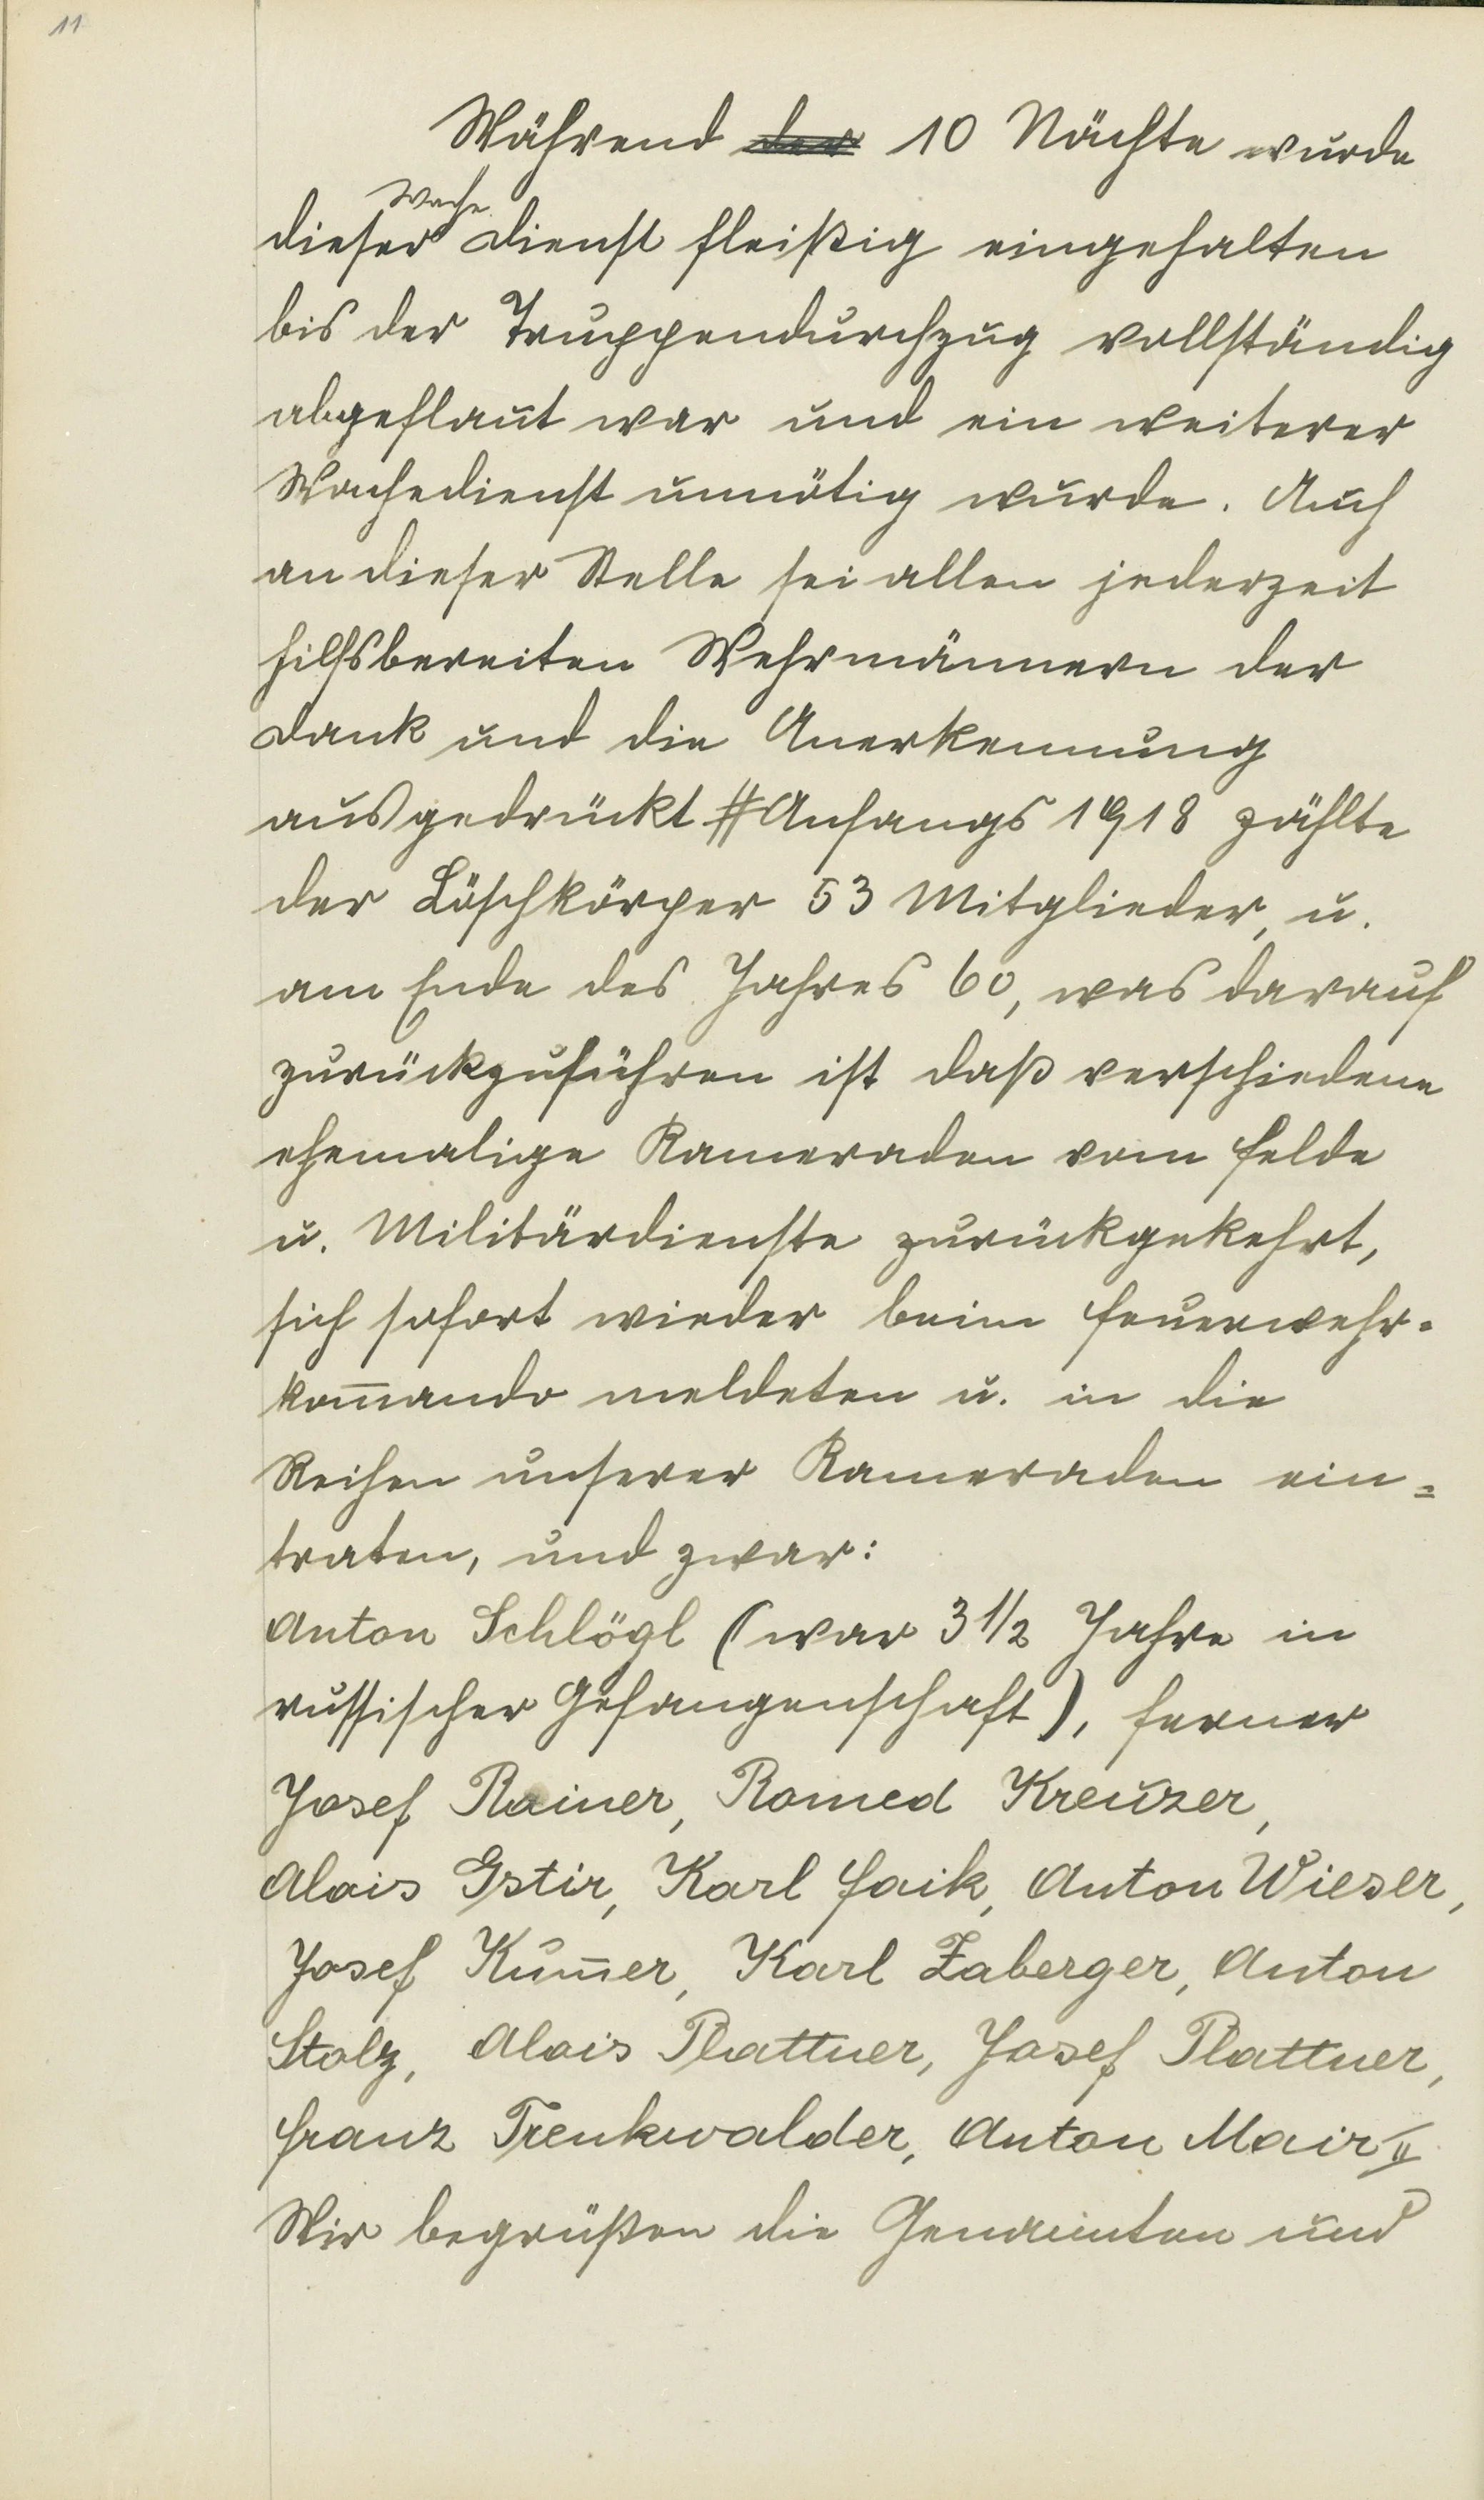 11
Während der 10 Nächte wurde
Wache
dieser Dienst fleißig eingehalten
bis der Truppendurchzug vollständig
abgeflaut war und ein weiterer
Wachedienst unnötig wurde. Auch
an dieser Stelle sei allen jederzeit
hilfsbereiten Wehrmännern der
Dank und die Anerkennung
ausgedrückt # Anfangs 1918 zählte
der Löschkörper 53 Mitglieder, u.
am Ende des Jahres 60, was darauf
zurückzuführen ist daß verschiedene
ehemalige Kameraden vom Felde
u. Militärdienste zurückgekehrt,
sich sofort wieder beim Feuerwehr-
kom̅ando meldeten u. in die
Reihen unserer Kameraden ein=
traten, und zwar:
Anton Schlögl (war 3 1/2 Jahre in
russischer Gefangenschaft), ferner
Josef Rainer, Romed Kreuzer,
Alois Gstir, Karl Faik, Anton Wieser,
Josef Kum̅er, Karl Zaberger, Anton
Stolz, Alois Plattner, Josef Plattner,
Franz Trenkwalder, Anton Mair II
Wir begrüßen die Genannten und